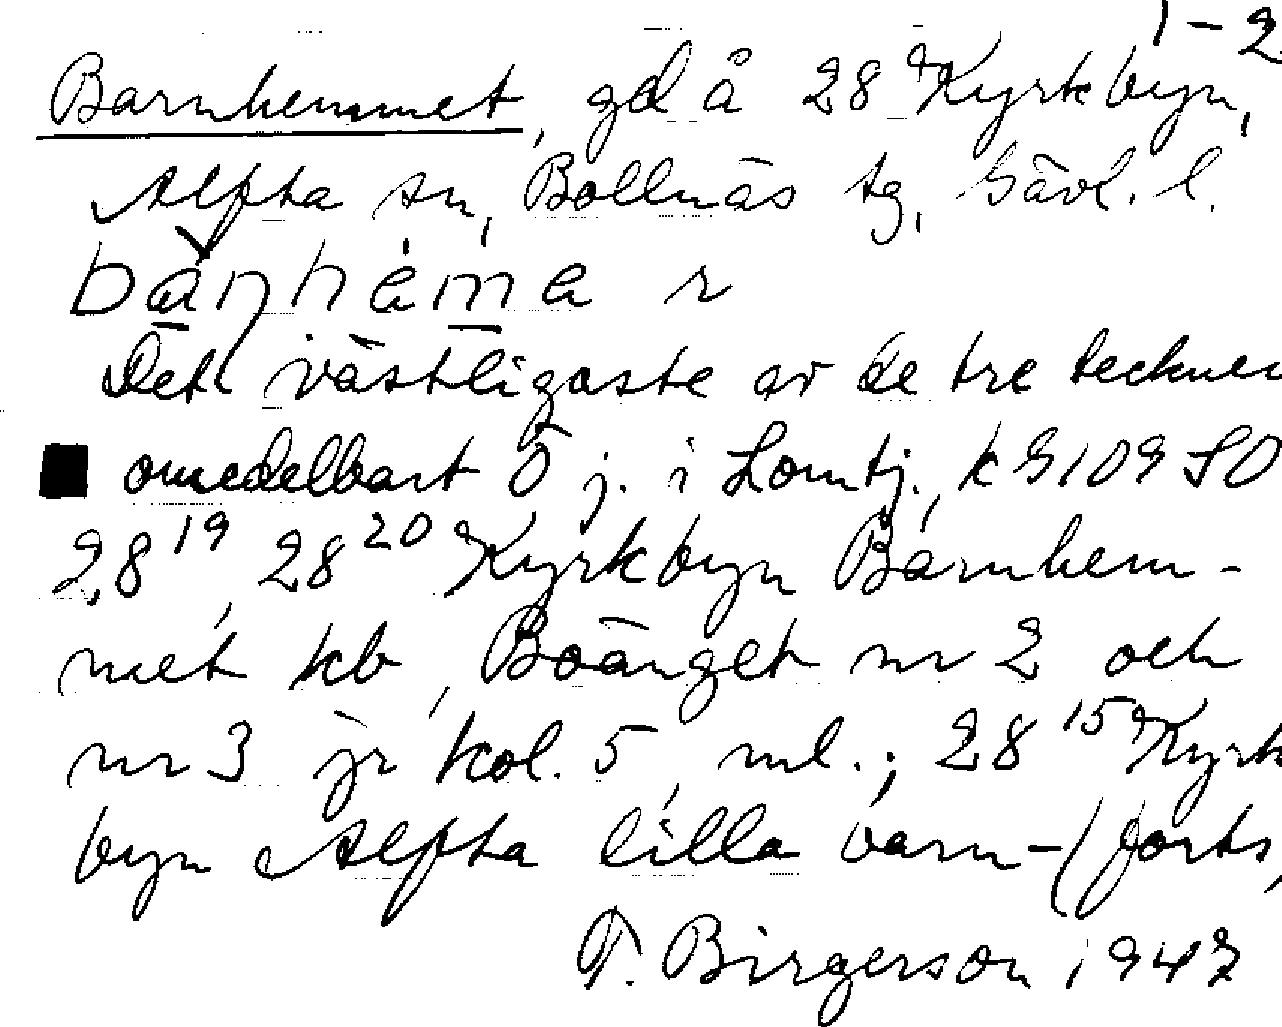 1-2
Barnhemmet, gd å 28 Kyrkbyn,
Alfta sn, Bollnäs tg, Gävl. l.
bånhema r
Det västligaste av de tre tecknen
■ omedelbart Ö j. i Lomtj., k 9109 SO
28¹⁹, 28²⁰ Kyrkbyn Barnhem-
met kb, Boänget nr 2 och
nr 3 jr kol. 5, ml.; 28¹⁵ Kyrk
byn Alfta lilla barn-(forts,
T. Birgerson 1947